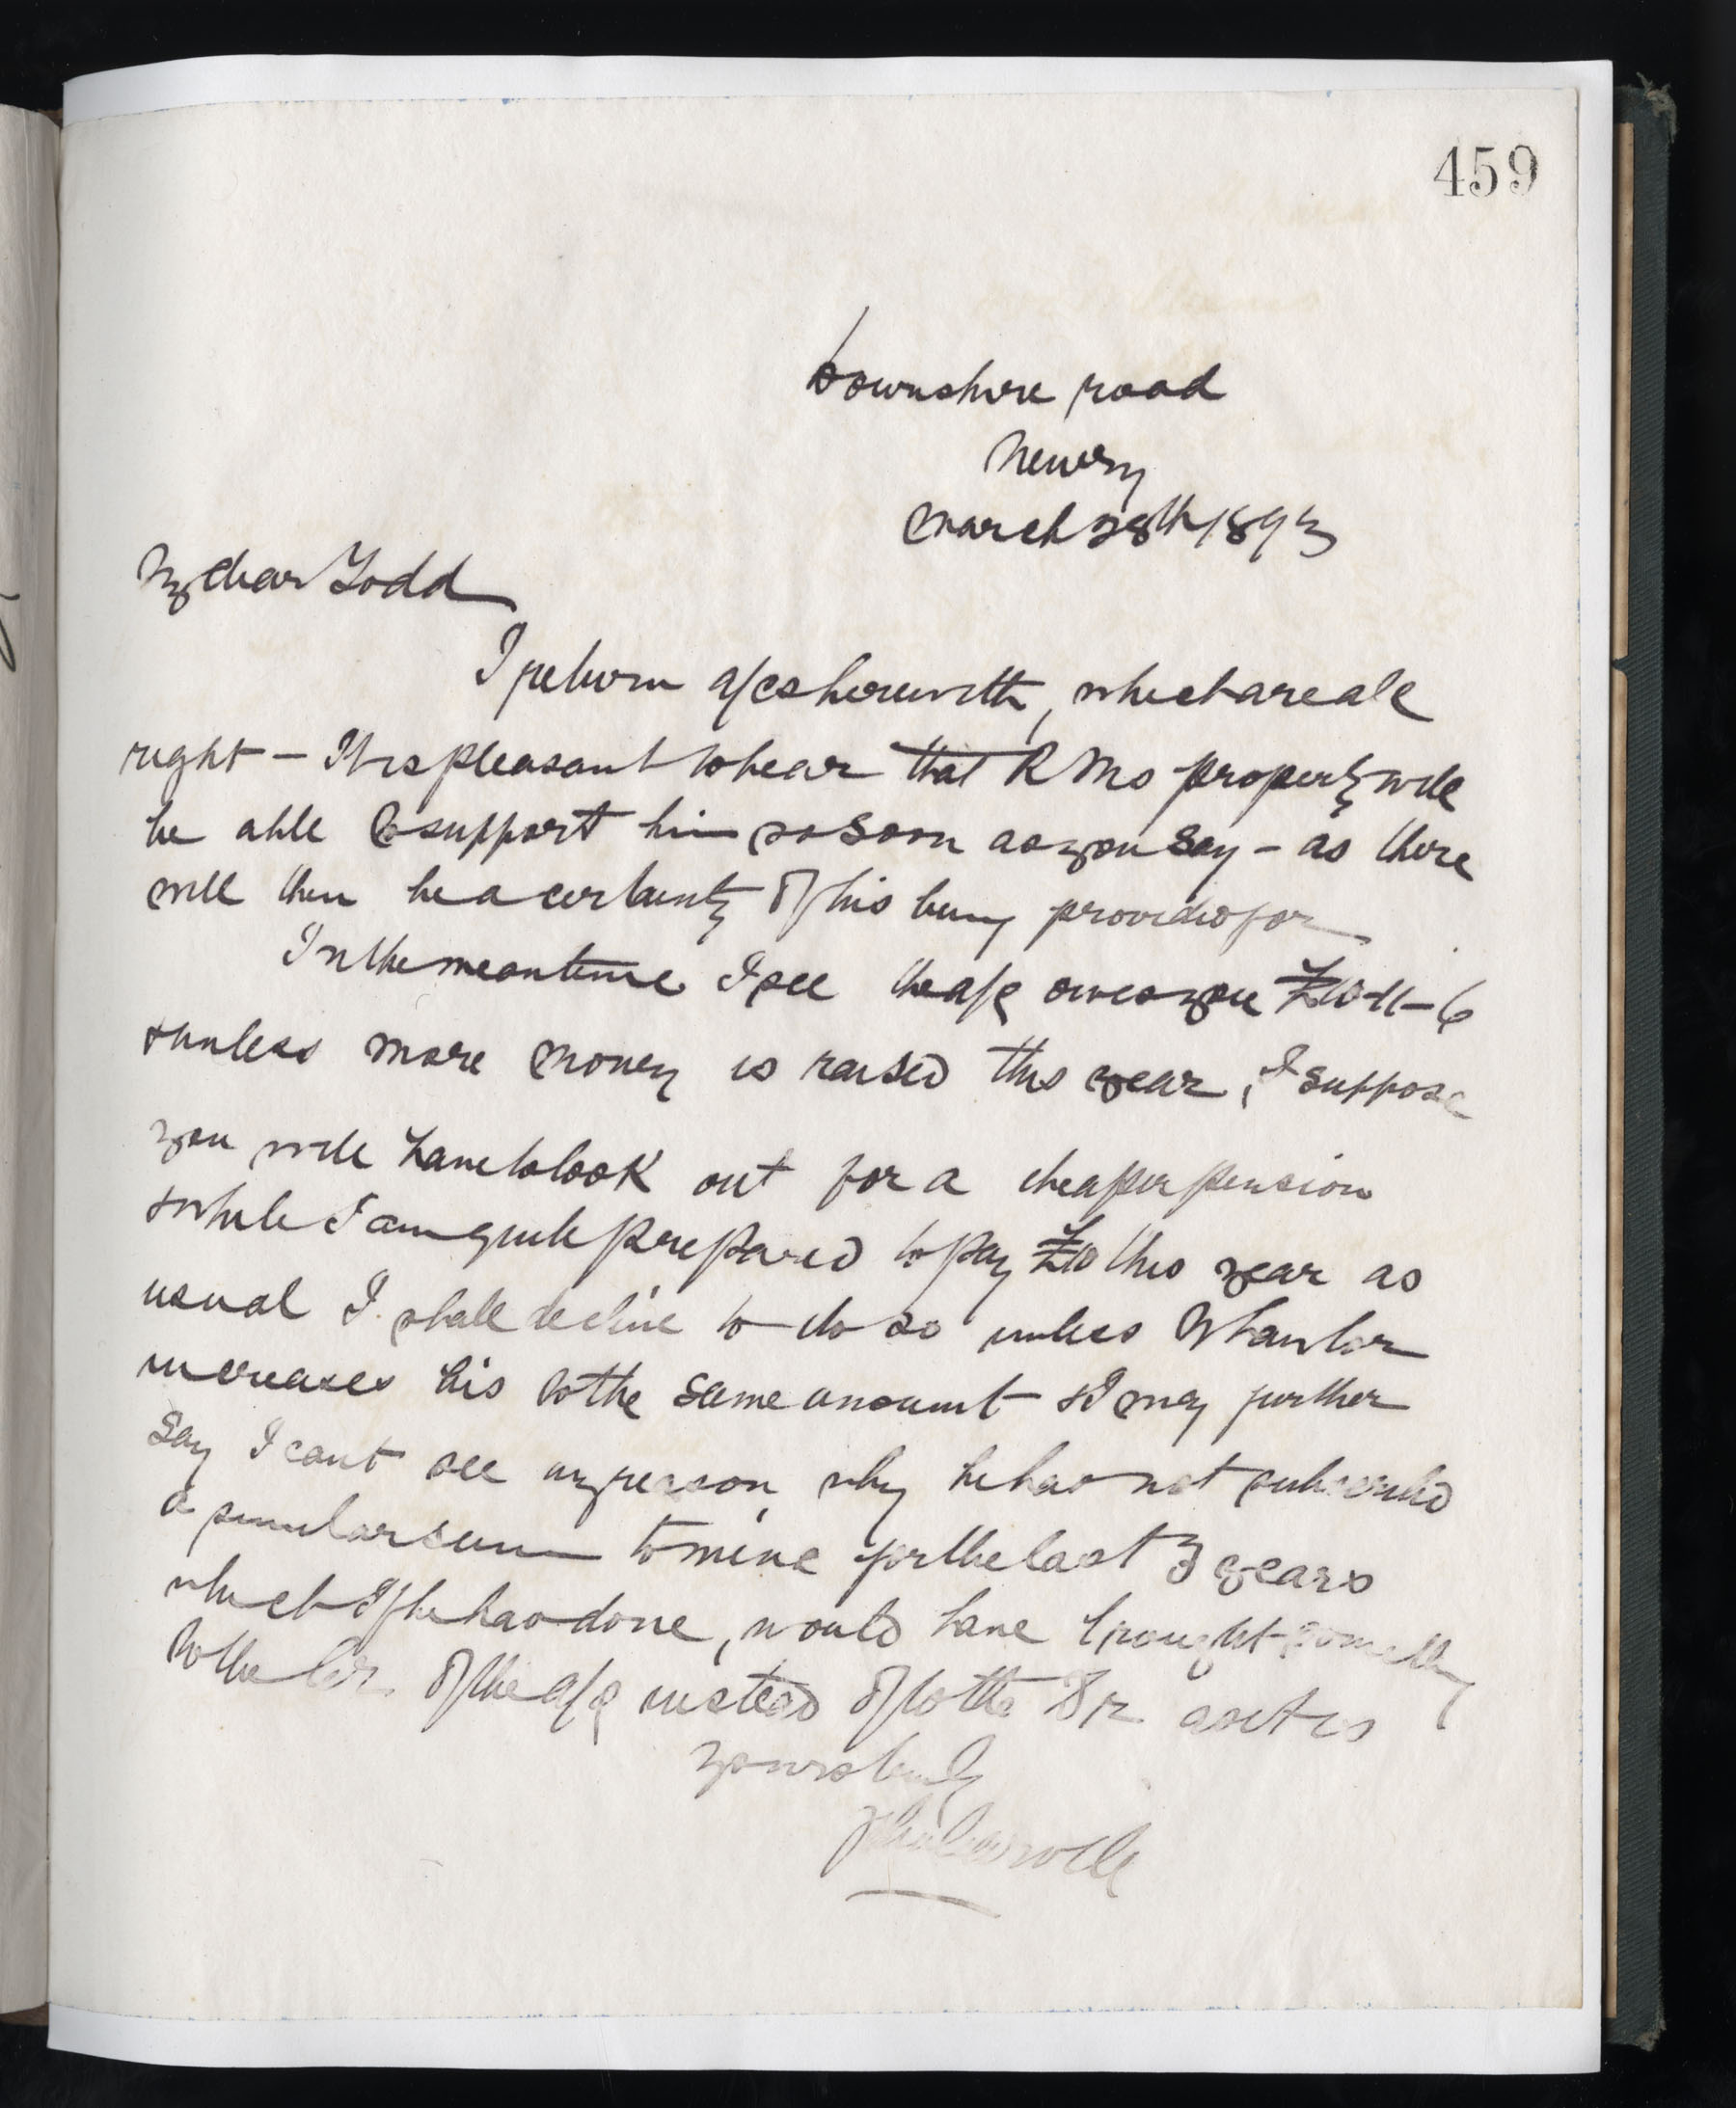 459
Downshire road
Newry
March 28th 1893
My dear Todd
I return a/cs herewith, which are all
right – It is pleasant to hear that R Ms property will
be able to support him so soon as you say – as there
will then be a certainty of his being provided for
In the meantime I see the a/c owes you £10-11-6
& unless more money is raised this year, I suppose
you will have to look out for a cheaper pension
& while I am quite prepared to pay £10 this year as
usual I shall decline to do so unless
increases his to the same amount & I may further
say I cant see any reason why he has not subscribed
a similar sum to mine for the last 3 years
which if he had done, would have brought something
to the Cr. of the a/c instead of to the Dr as it is
Yours truly